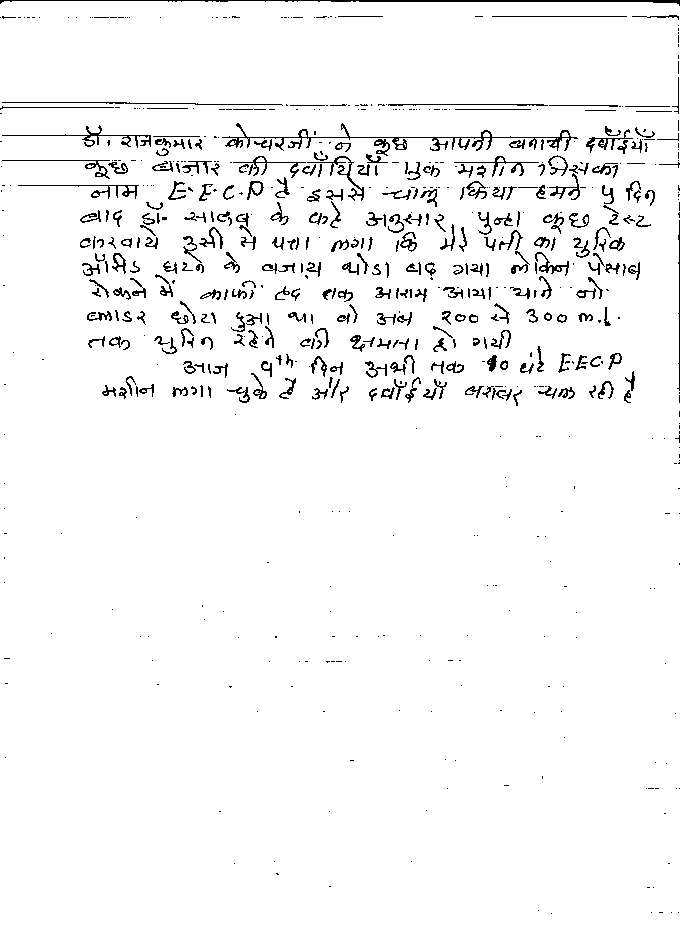 डॉ. राजकुमार कोचरजी ने कुछ आपनी बनायी दवाँईयाँ
कूछ बाजार की दवाँयियाँ एक मशीन जिसका
नाम E.E.C.P है इससे चालू किया हमने ५ दिन
बाद डॉ. साहब के कहे अनुसार पुन्हा कूछ टेस्ट
करवाये उसी से पत्ता लगा कि मेरे पत्नी का युरिक
अॅसिड घटने के बजाय थोडा बढ गया लेकिन पेसाब
रोकने में काफी हद तक आराम आया याने जो
ब्लाडर छोटा हुआ था वो अब २०० से 300 m.l.
तक युरिन रेहेने की क्षमता हो गयी
आज 9th दिन अभी तक 10 घंटे E.E.C.P
मशीन लगा चुके है और दवाँईयाँ बराबर चल रही है